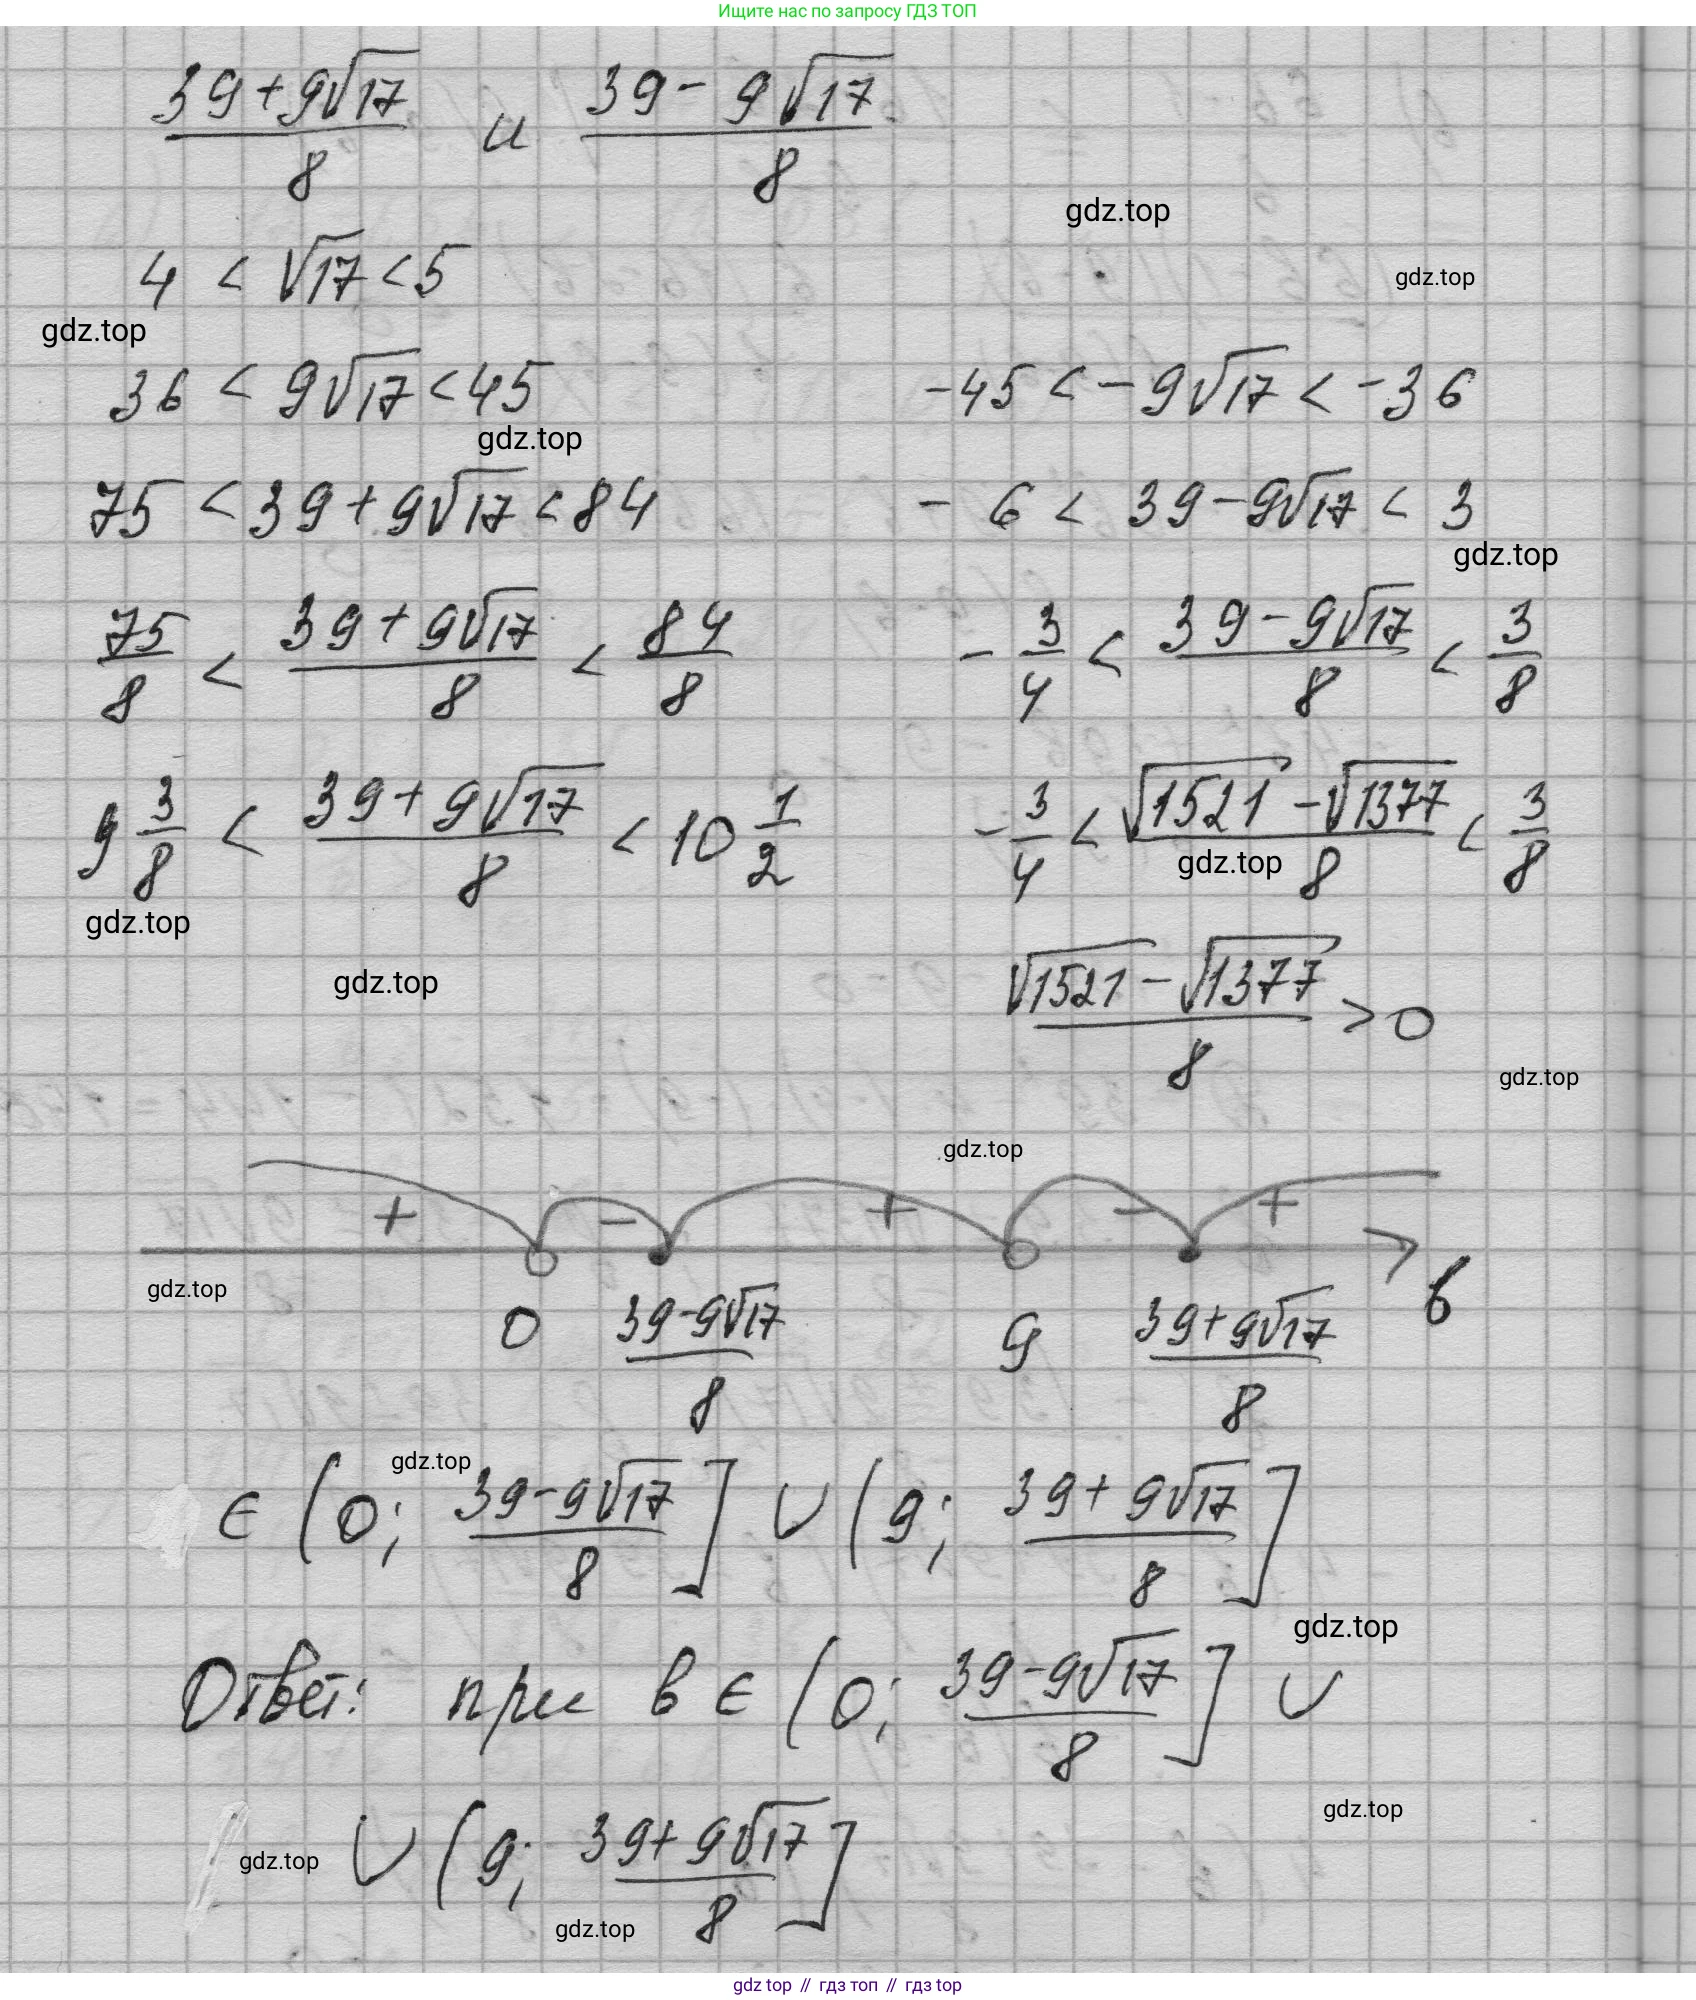 Ищите нас по запросу ГДЗ ТОП
(39+9√17)/8 и (39-9√17)/8
gdz.top
4 < √17 < 5
gdz.top
gdz.top
36 < 9√17 < 45 -45 < -9√17 < -36
gdz.top
75 < 39+9√17 < 84 -6 < 39-9√17 < 3
gdz.top
75/8 < (39+9√17)/8 < 84/8 -3/4 < (39-9√17)/8 < 3/8
9 3/8 < (39+9√17)/8 < 10 1/2 -3/4 < (√1521-√1377)/8 < 3/8
gdz.top
gdz.top
gdz.top
(√1521-√1377)/8 > 0
gdz.top
gdz.top
+ - + - +
gdz.top
0 (39-9√17)/8 9 (39+9√17)/8 б
gdz.top
∈ (0; (39-9√17)/8] ∪ (9; (39+9√17)/8]
gdz.top
Ответ: при в ∈ (0; (39-9√17)/8] ∪
gdz.top
∪ (9; (39+9√17)/8]
gdz.top
gdz.top
gdz top // гдз топ // гдз top